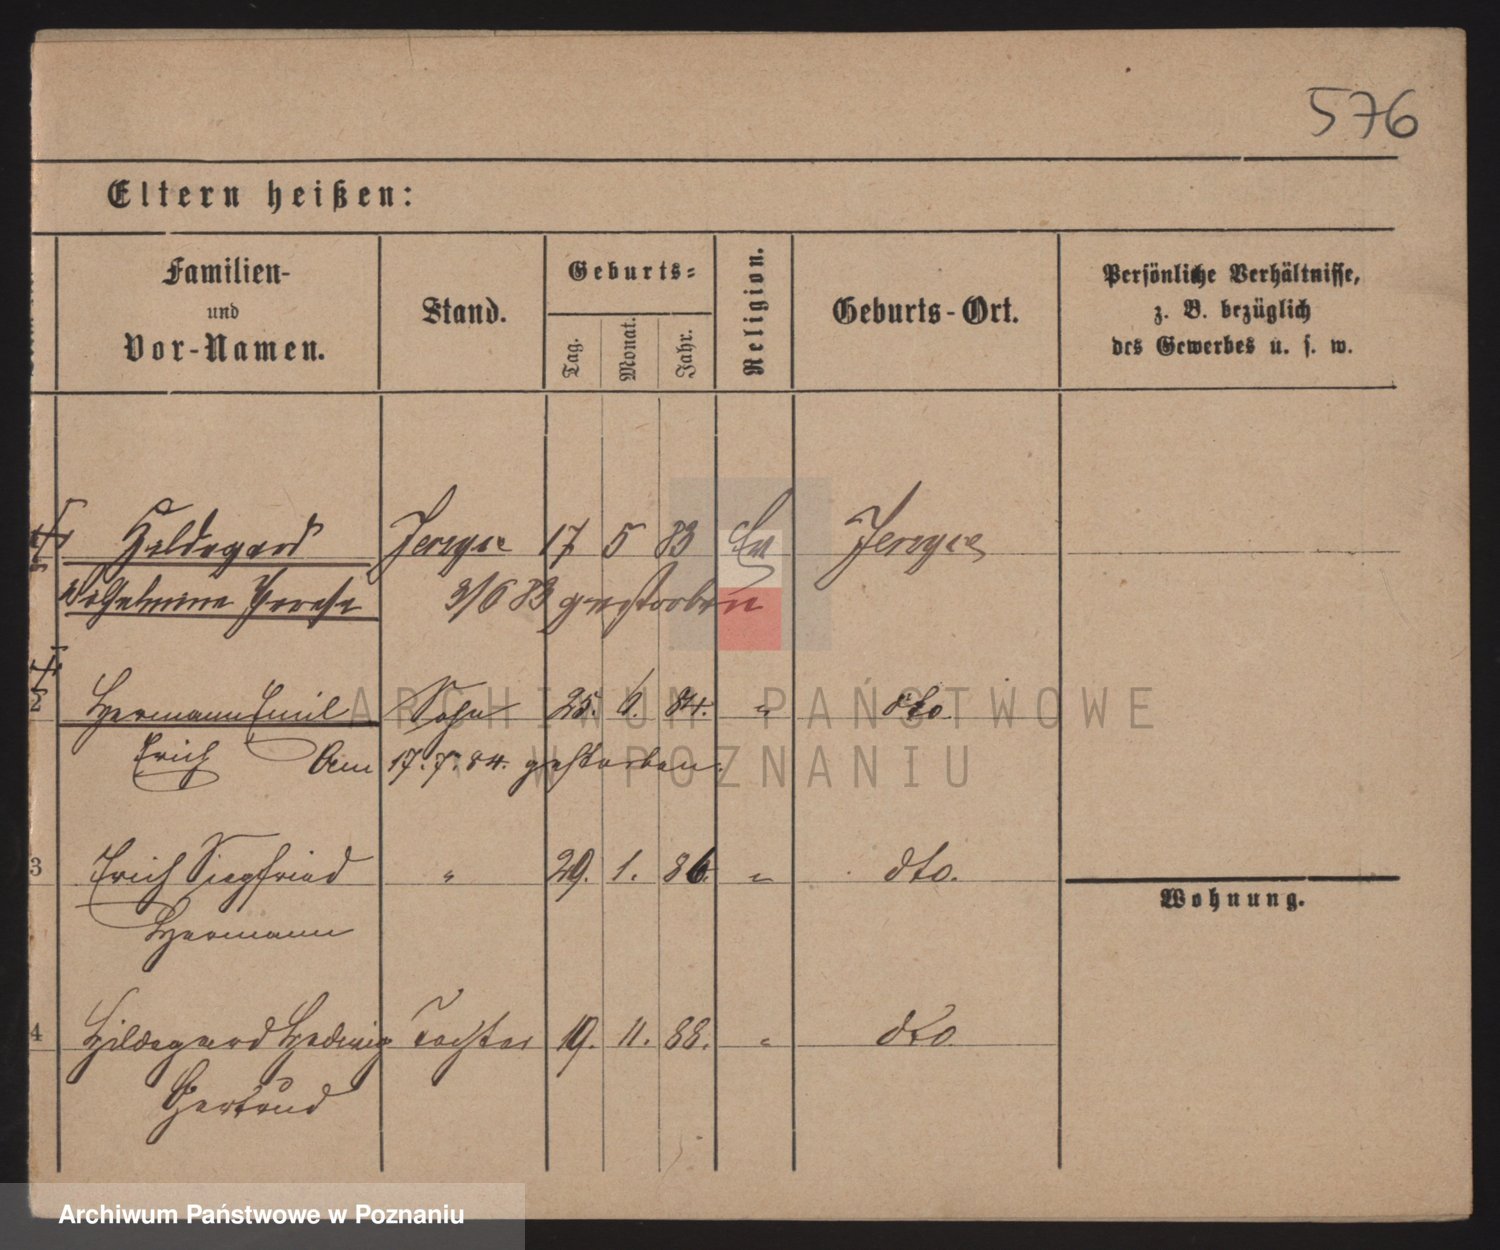 576
Eltern heißen:
Familien-
und
Vor-Namen.
Stand.
Geburts=
Tag.
Monat.
Jahr.
Religion.
Geburts-Ort.
Persönliche Verhältnisse,
z. B. bezüglich
des Gewerbes u. s. w.
Hildegard Jersyce 17 5 83 Ev Jersyce
Wilhelmine 3/6 83 gestorben
2 Hermann Emil Sohn 25. 6. 84. " dto.
Erich Am 17. 7. 84. gestorben.
3 Erich Siegfried " 29. 1. 86. " dto.
Hermann
Wohnung.
4 Hildegard Hedwig Tochter 19. 11. 88. " dto.
Gertrud
ARCHIWUM PAŃSTWOWE
W POZNANIU
Archiwum Państwowe w Poznaniu